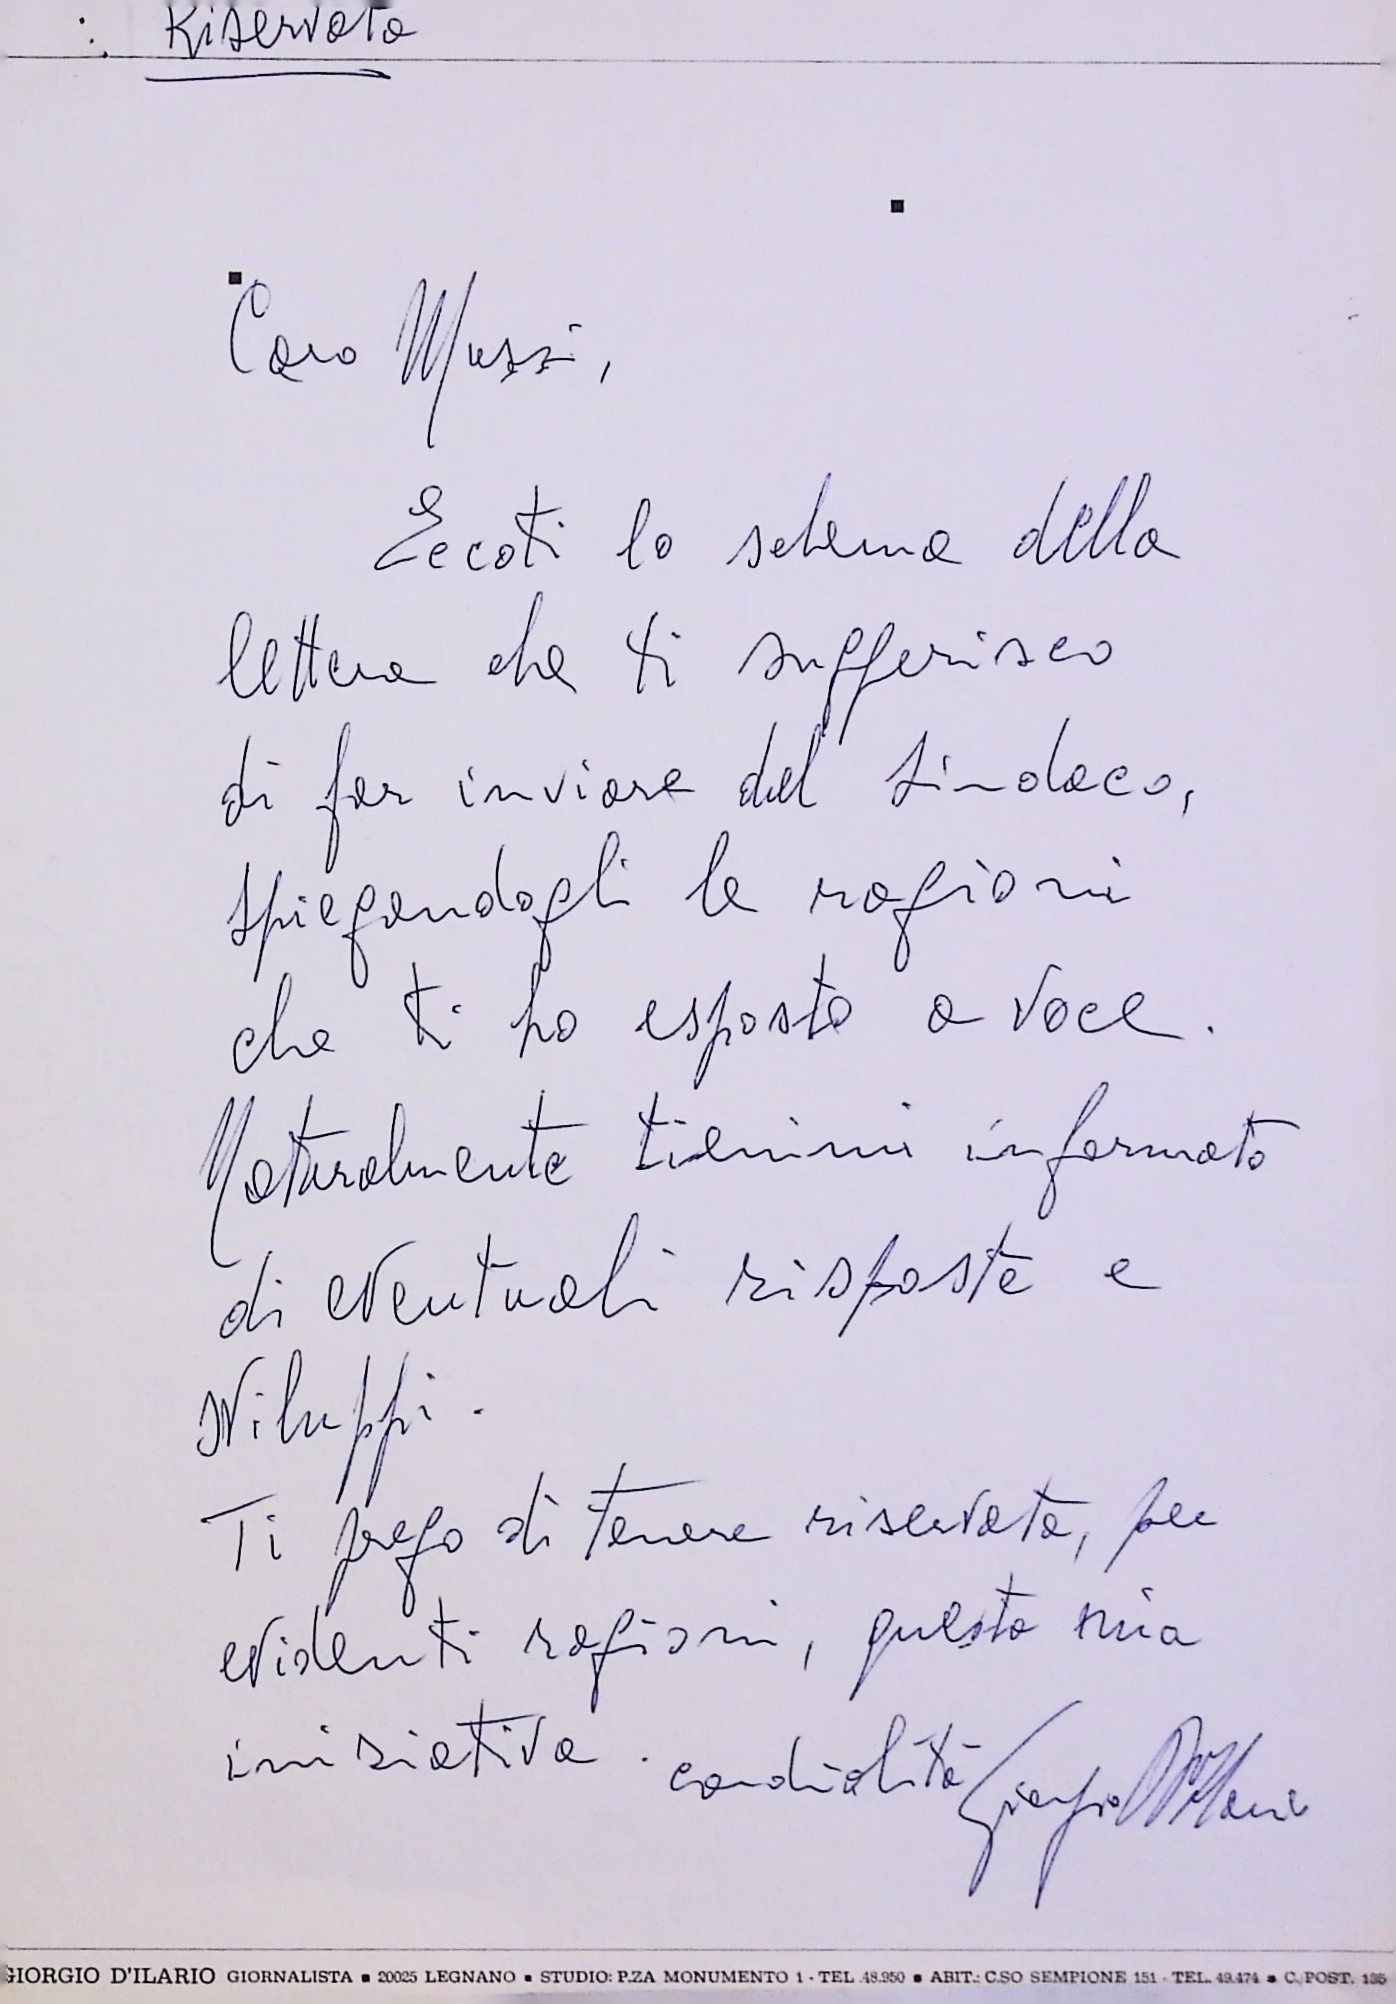 Riservata
Caro Mussi,
Eccoti lo schema della
lettera che ti suggerisco
di far inviare dal Sindaco,
spiegandogli le ragioni
che ti ho esposto a voce.
Naturalmente tienimi informato
di eventuali risposte e
sviluppi.
Ti prego di tenere riservata, per
evidenti ragioni, questa mia
iniziativa. cordialità Giorgio D'Ilario
GIORGIO D'ILARIO GIORNALISTA ■ 20025 LEGNANO ■ STUDIO: P.ZA MONUMENTO 1 - TEL. 48.950 ■ ABIT.: C.SO SEMPIONE 151 - TEL. 49.474 ■ C. POST. 135